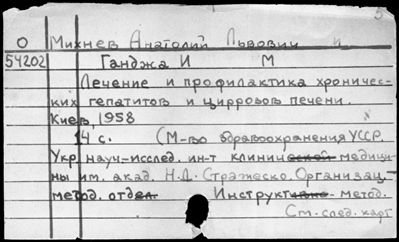 5
О Михнев Анатолий Львович и
54202 Ганджа И М
Лечение и профилактика хроничес-
ких гепатитов и циррозов печени.
Киев, 1958
14 с. (М-во здравоохранения УССР.
Укр. науч-исслед. ин-т клинической медици-
ны им. акад. Н.Д. Стражеско. Организац.-
метод. отдел Инструктивно-метод.
См. след. карт